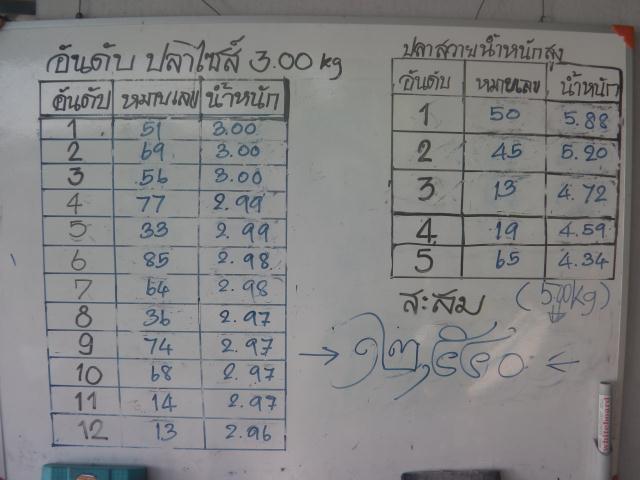 อันดับ ปลาไซส์ 3.00 kg
อันดับ หมายเลข น้ำหนัก
1 51 3.00
2 69 3.00
3 56 3.00
4 77 2.99
5 33 2.99
6 85 2.98
7 64 2.98
8 36 2.97
9 74 2.97
10 68 2.97
11 14 2.97
12 13 2.96
ปลาสวายน้ำหนักสูง
อันดับ หมายเลข น้ำหนัก
1 50 5.88
2 45 5.20
3 13 4.72
4 19 4.59
5 65 4.34
สะสม
→ ๑๒,๕๔๐ ←
Whiteboard